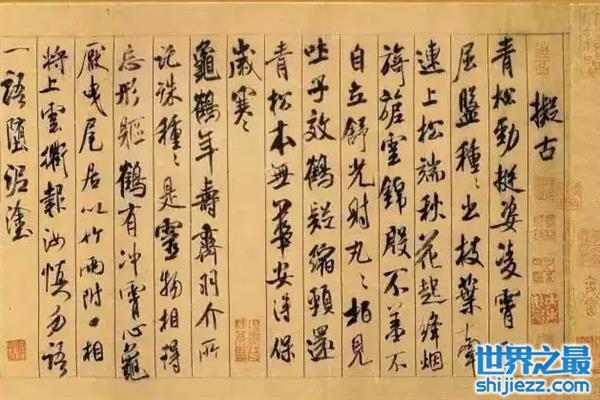 擬古
青松勁挺姿凌霄恥
屈盤種〻出枝葉牽
連上松端秋花起絳烟
旖旎雲錦殷不羞不
自立舒光射丸〻柏見
吐子效鶴疑縮頸還
青松本無華安得保
歲寒〻
龜鶴年壽齊羽介所
託殊種〻是靈物相得
忘形軀鶴有沖霄心龜
厭曳尾居以竹兩附口相
將上雲衢報汝慎勿語
一語墮泥塗
世界之最
shijiezz.com